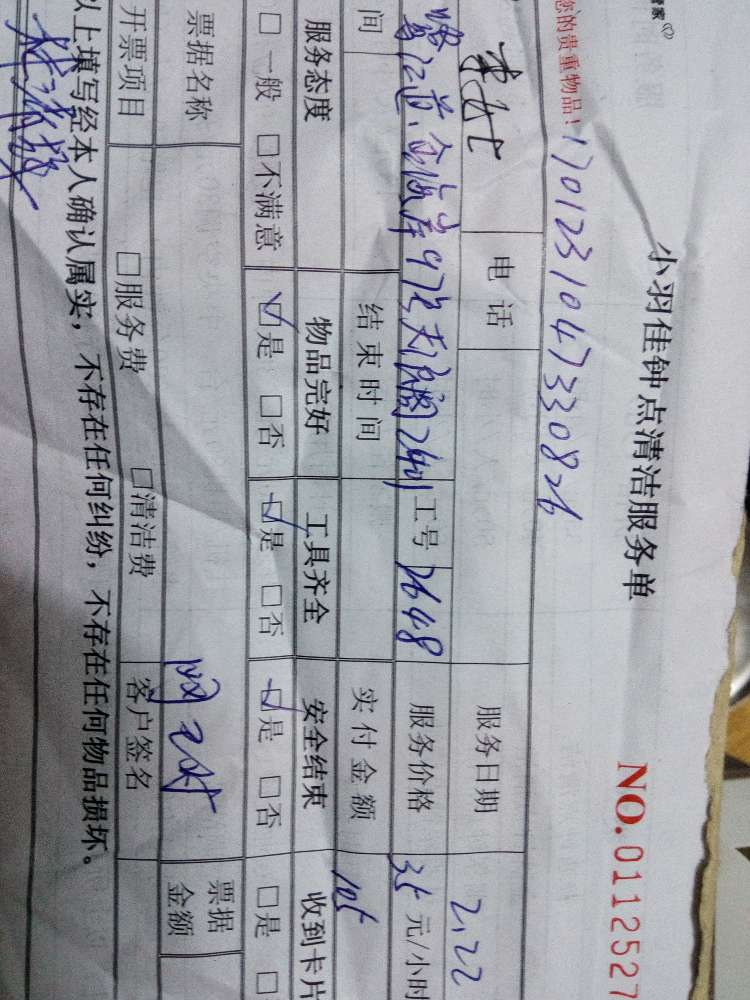 管家
小羽佳钟点清洁服务单
NO. 0112527
您的贵重物品! 170123104733082b
电话 服务日期 2.22
9号天浪阁2401 工号 2648 服务价格 35 元/小时
间 结束时间 实付金额 105
服务态度 物品完好 工具齐全 安全结束 收到卡片
□一般 □不满意 ☑是 □否 ☑是 □否 ☑是 □否 □是 □
票据名称 票据金额
开票项目 □服务费 □清洁费 客户签名
以上填写经本人确认属实，不存在任何纠纷，不存在任何物品损坏。